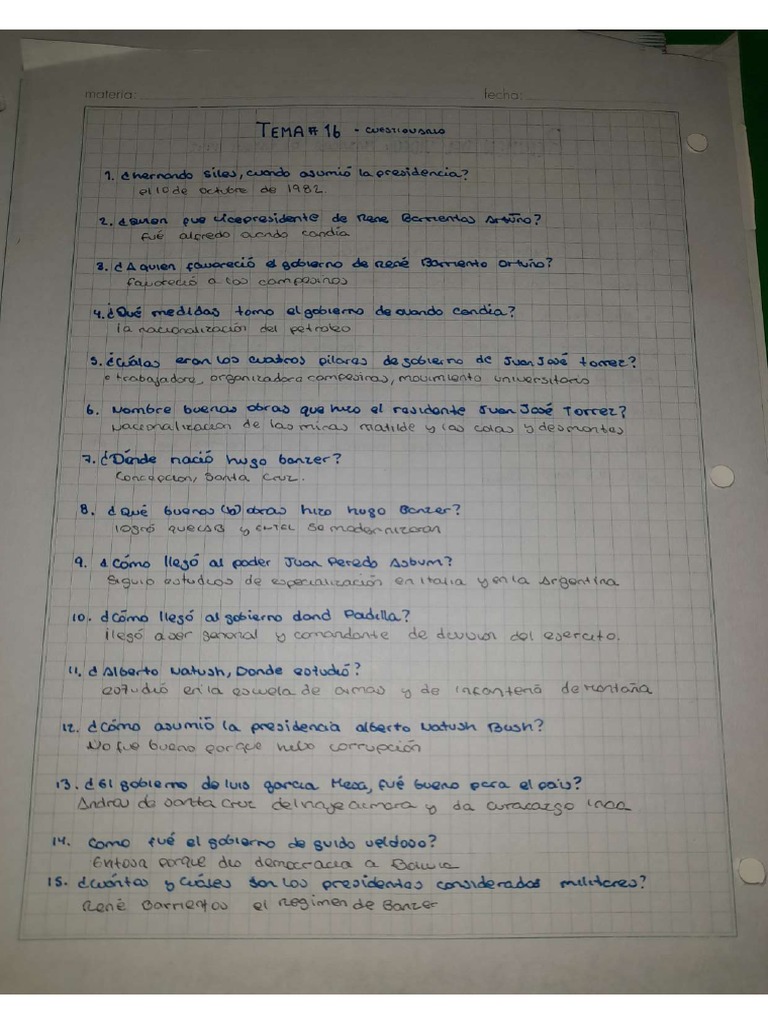 materia:
fecha:
TEMA # 16 - CUESTIONARIO
1. ¿hernando siles, cuando asumió la presidencia?
el 10 de octubre de 1982.
2. ¿quien fue vicepresidente de Rene Barrientos Artuño?
fué alfredo ovando candia
3. ¿A quien favoreció el gobierno de René Barriento ortuño?
favoreció a los campesinos
4. ¿Qué medidas tomo el gobierno de ovando candia?
la nacionalización del petroleo
5. ¿Cuálas eran los cuatros pilares de gobierno de Juan José torrez?
trabajadore, organizadora campesinas, movimiento universitario
6. Nombre buenas obras que hizo el residente Juan José Torrez?
Nacionalizacion de las minas matilde y las colas y desmontes
7. ¿Dónde nació hugo banzer?
Concepcion, Santa Cruz.
8. ¿Qué buenas (b) obras hizo hugo Banzer?
logró que y se modernizaran
9. ¿Cómo llegó al poder Juan Peredo Asbum?
Siguio estudios de especialización en italia y en la Argentina
10. ¿Cómo llegó al gobierno david Padilla?
llegó a ser general y comandante de division del ejercito.
11. ¿Alberto Natush, Donde estudió?
estudió en la escuela de armas y de infanteria de montaña
12. ¿Cómo asumió la presidencia alberto Natush Bush?
No fue bueno porque hubo corrupción
13. ¿El gobierno de luis garcia Meza, fué bueno para el país?
Andres de Santa Cruz del linaje aymara y da inca
14. Como fué el gobierno de guido veldoso?
Exitosa porque dio democracia a Bolivia
15. ¿Cuántos y Cuáles son los presidentes considerados militares?
René Barrientos el Regimen de Banzer